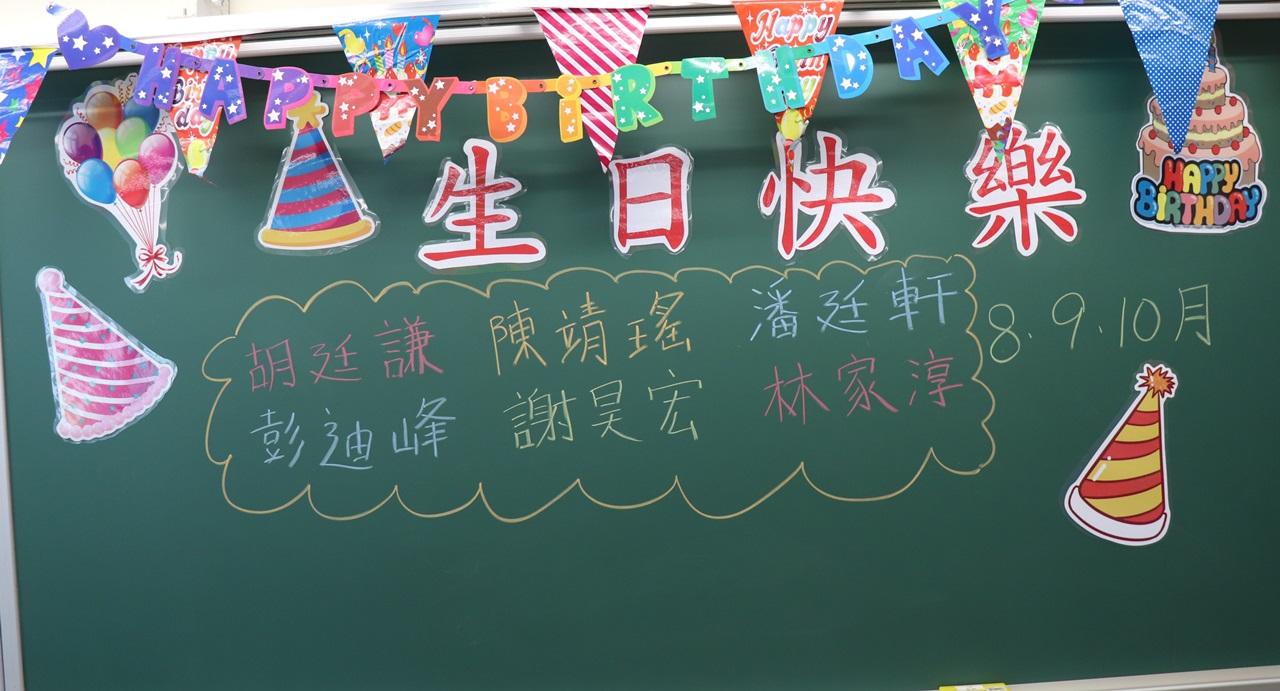 HAPPY BIRTHDAY
Happy
生日快樂
HAPPY
BIRTHDAY
胡廷謙 陳靖瑤 潘廷軒 8.9.10月
彭迪峰 謝昊宏 林家淳